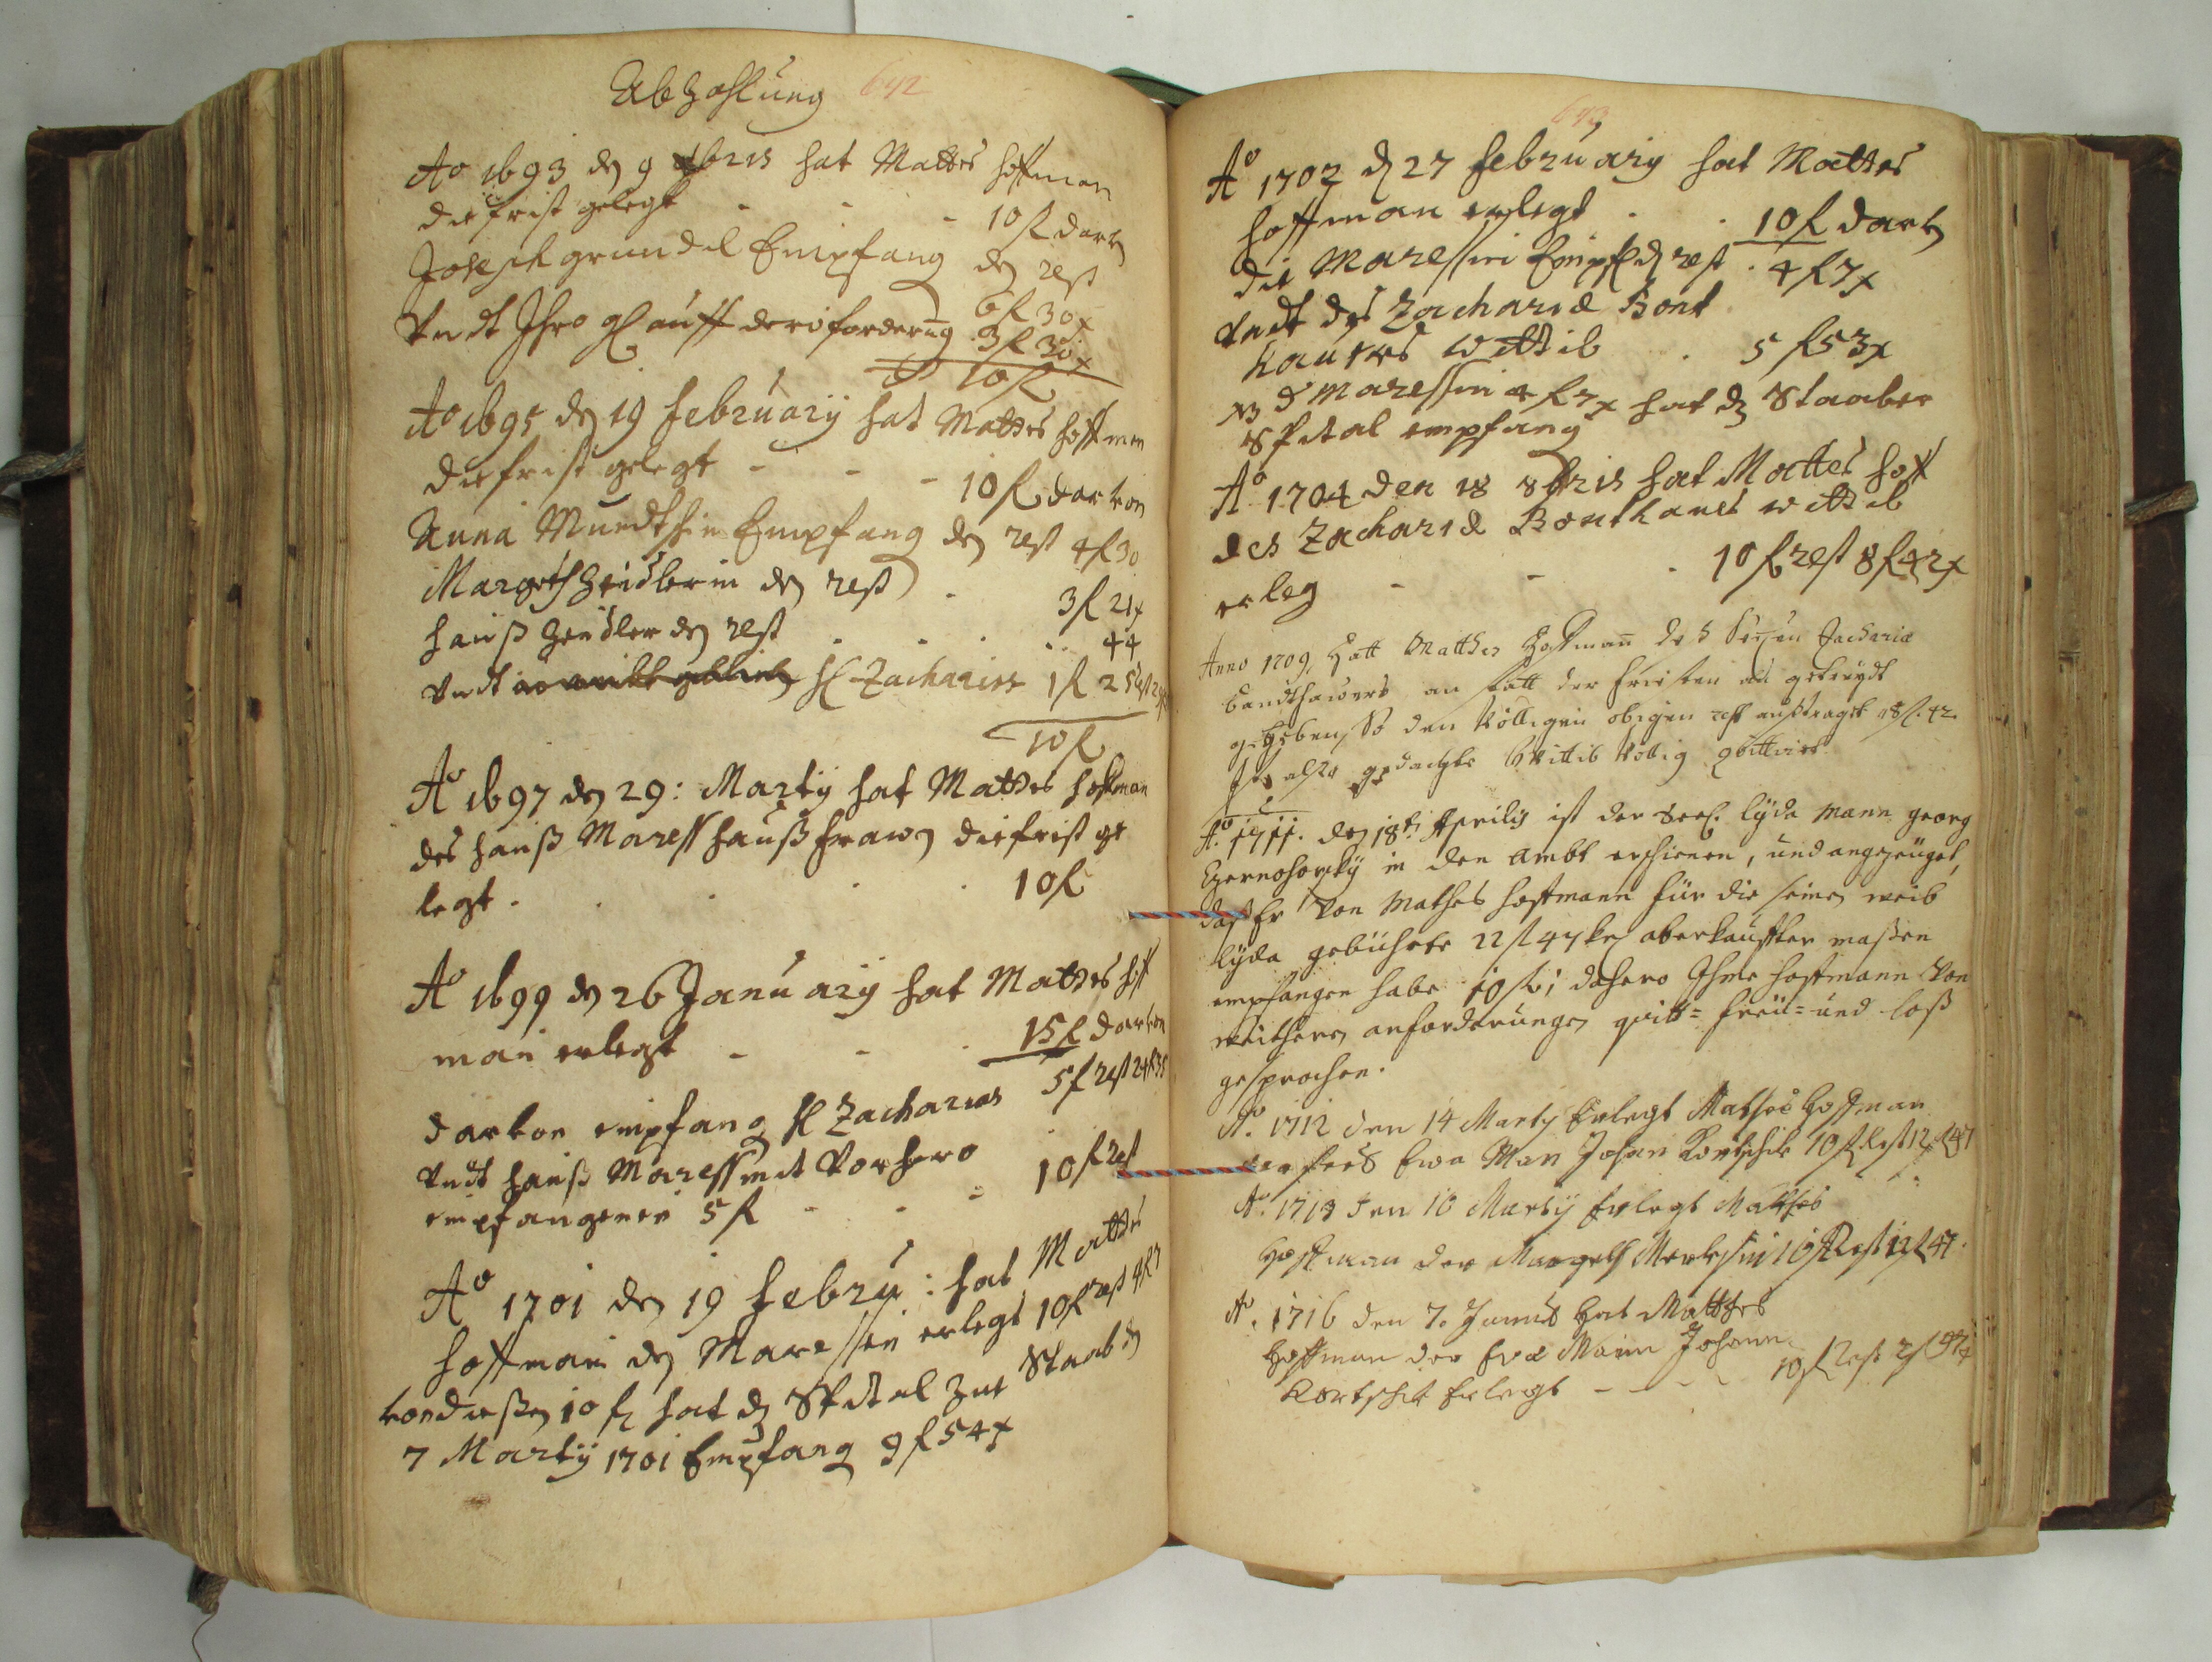 Abzahlung 642
Ao 1693 den 9 bris hat Mattes Hoffman
die frist gelegt - - - 10 fl darvon
Joseph Grundel Empfang den rest
6 fl 30 x
Vndt Ihro gl auff dero forderung 3 fl 30 x
10 fl
Ao 1695 den 19 February hat Mattes Hoffman
die frist gelegt - - - 10 fl darvon
Anna Mundtsin Empfang den rest 4 fl 30
Margeth Zeidlerin den rest . 3 fl 21 x
Hanß Zeidler den rest . . . . 44
Vndt H Zacharias 1 fl 25
10 fl
Ao 1697 den 29: Marty hat Mattes Hoffman
des Hanß Maress haußfrawen die frist ge
legt . . . . 10 fl
Ao 1699 den 26 January hat Mattes Hoff
man erlegt - - - 15 fl darvon
darvon empfang H Zacharias 5 fl rest 24 fl 35
Vndt Hanß Maress mit Vorhero
empfangenen 5 fl - - - 10 fl rest
Ao 1701 den 19 Febru: hat Mattes
Hoffman den Maressin erlegt 10 fl rest 4 fl 7
von dießen 10 fl hat den Spital zue Staab den
7 Marty 1701 Empfang 9 fl 54 x
643
Ao 1702 den 27 February hat Mattes
Hoffman erlegt . . 10 fl darvon
die Maressin Empf den rest . 4 fl 7 x
Vndt des Zachariae Bont
hauers Wittib . 5 fl 53 x
NB d Maressin 4 fl 7 x hat den Staaber
Spital empfang
Ao 1704 den 18 8bris hat Mattes Hoff
des Zachariae Bonthaues wittib
erleg - - - 10 fl rest 8 fl 42 x
Anno 1709, Hatt Matthes Hoffman des
bandthawers an statt der fristen an getreydt
gegeben, So den völligen obigen rest außtraget 8 fl. 42.
Ist also gedachte Wittib völlig quittiret
Ao. 1711. den 18t Aprilis ist der Lyda Mann Georg
Czernohorsky in den Ambt erschienen, und angezeuget,
daß Er Von Mathes Hoffmann für die seinen weib
Lyda gebührte 22 fl 47 kr abverkauffter maßen
empfangen habe 10 fl; dahero Ihme Hoffmann Von
weithern anforderungen quitt= frey= und loß
gesprochen.
Ao. 1712 den 14 Marty Erlegt Mathes Hoffman
der Ewa Man Johan Kortschik 10 fl Rest 12 fl 47
Ao. 1713 den 10 Marty Erlegt Matthes
Hoffman der Margeth 10 fl Rest 12 fl 47.
Ao. 1716 den 7. Junius Hat Matthes
Hoffman der Eva Mann Johann
Kortschik Erlegt - - - - 10 fl Rest 2 fl 47 x